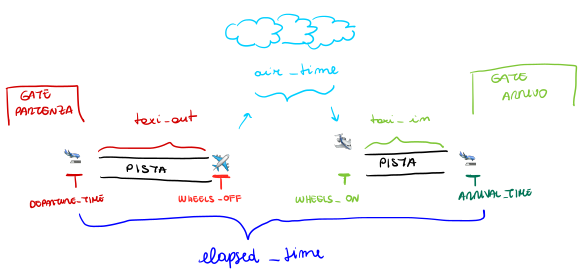 air_time
GATE
PARTENZA
GATE
ARRIVO
taxi_out
taxi_in
PISTA
PISTA
DEPARTURE_TIME
WHEELS_OFF
WHEELS_ON
ARRIVAL_TIME
elapsed_time